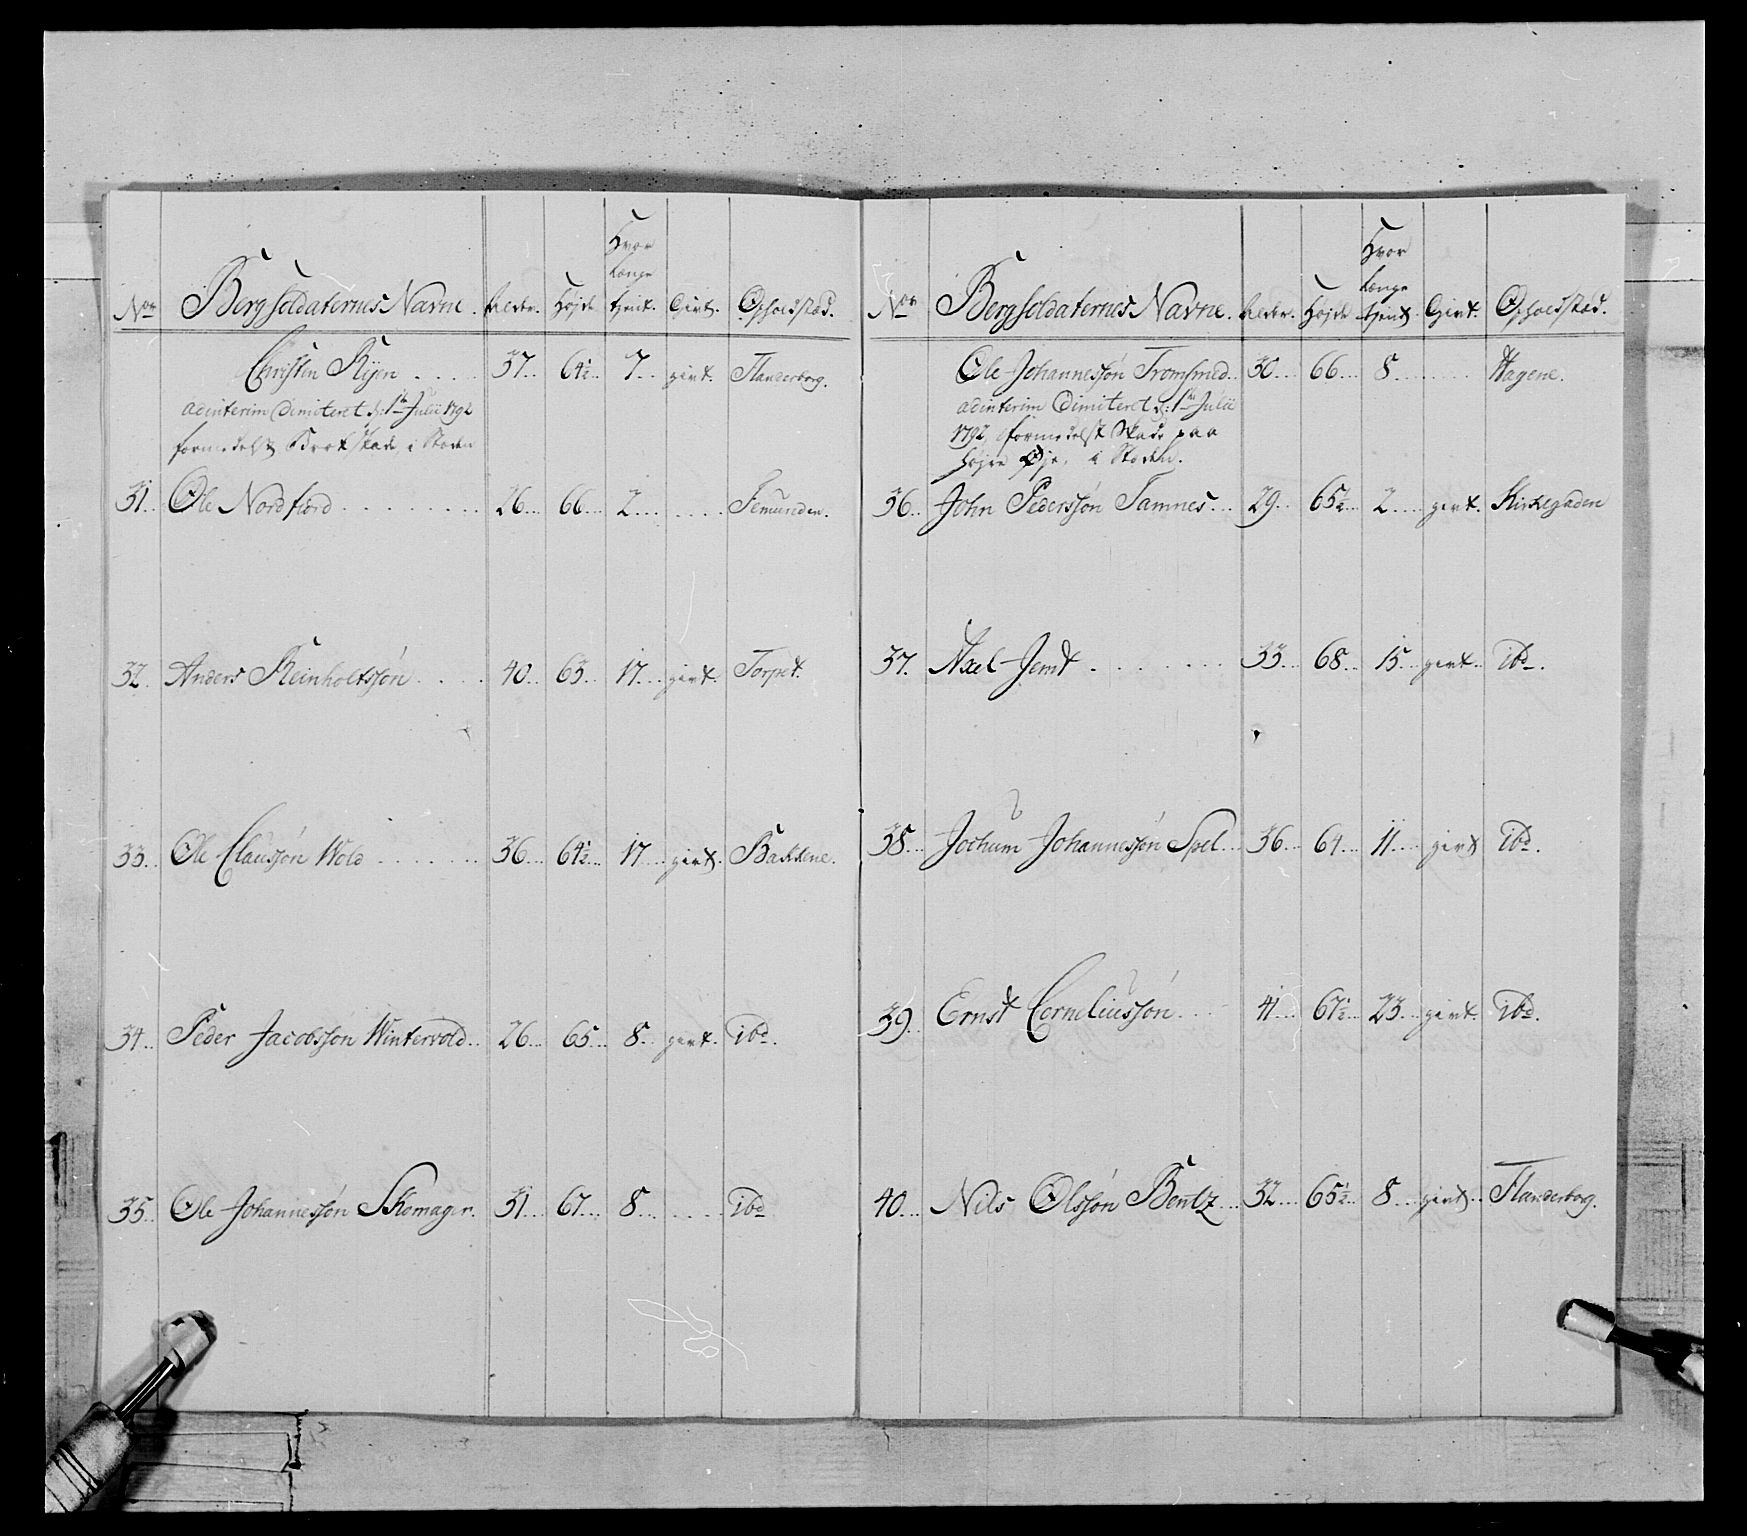 Nor Bergsoldaternes Navne. Alder. Højde Hvor længe tjent. Givt. Opholdstæd.
Christen Ryen . . . . 37.. 64½.. 7... givt. Flanderborg.
adinterim Dimiteret d: 1te Julii 1792
formedelst Brokskade, i Steden
31. Ole Nordfiord . . . . . . . . . 26... 66... 2... . . . . Femunden.
32. Anders Reinholtssøn . . . . 40... 63... 17... givt. Torpet.
33. Ole Claussøn Wold . . . . . . . 36... 64½... 17... givt. Bakkene.
34. Peder Jacobssøn Wintervold.. 26... 65... 8... givt. ibd.
35. Ole Johannessøn Skomager. 31... 67... 8... . . . . ibd
Nor Bergsoldaternes Navne. Alder. Højde Hvor længe tjent. Givt. Opholdstæd.
Ole Johannessøn Tromsmed. 30... 66... 8... . . . . Hagene.
adinterim Dimiteret d: 1te Julii
1792, formedelst Skade paa
højre Øje, i Steden.
36. John Pederssøn Tamnes... 29... 65½... 2... givt. Kirkegaden
37. Axel Jemt . . . . . . . 33... 68... 15... givt. ibd.
38. Jochum Johannessøn Spel... 36... 64... 11... givt ibd.
39. Ernst Corneliussøn... 41... 67½... 23... givt. ibd.
40... Nils Olssøn Bentz... 32... 65½... 8... givt.. Flanderborg.